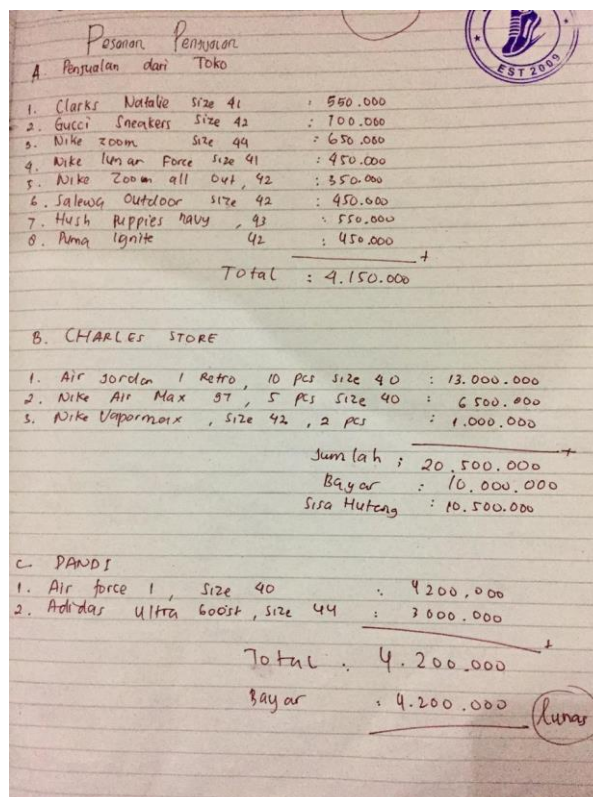 Pesanan Penjualan
EST 2009
A. Penjualan dari Toko
1. Clarks Natalie size 41 : 550.000
2. Gucci Sneakers size 42 : 700.000
3. Nike zoom size 44 : 650.000
4. Nike lunar Force size 41 : 450.000
5. Nike Zoom all out, 42 : 350.000
6. Salewa Outdoor size 42 : 450.000
7. Hush puppies navy , 43 : 550.000
8. Puma Ignite 42 : 450.000
+
Total : 4.150.000
B. CHARLES STORE
1. Air Jordan 1 Retro, 10 pcs size 40 : 13.000.000
2. Nike Air Max 97, 5 pcs size 40 : 6 500.000
3. Nike Vapormax , size 42 , 2 pcs : 1.000.000
+
Jumlah : 20.500.000
Bayar : 10.000.000
Sisa Hutang : 10.500.000
C PANDI
1. Air force 1, size 40 : 4200.000
2. Adidas Ultra boost, size 44 : 3 000.000
+
Total : 4.200.000
Bayar : 4.200.000
lunas